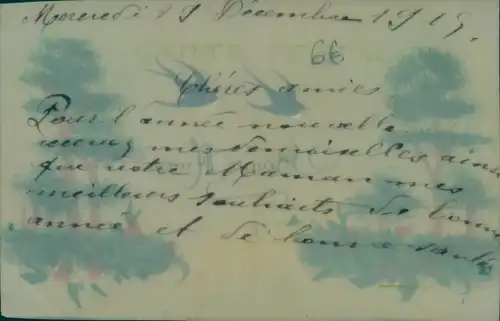 Mercredi 19 Décembre 1915.
6€
Chères amies
Pour l'année nouvelle
recevez mesdemoiselles ainsi
que votre Maman mes
meilleurs souhaits de bonne
année et de bonne santé